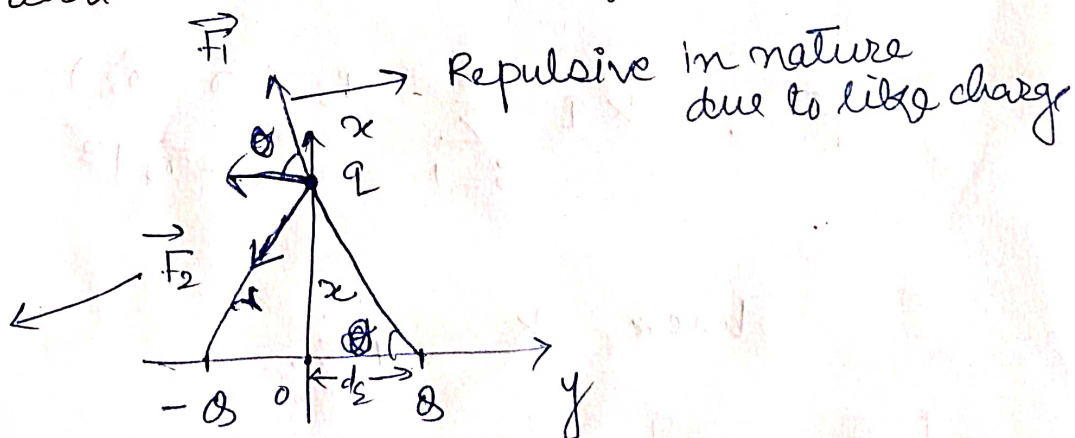 F₁
Repulsive in nature
due to like charge
x
θ
q
F₂
r
x
θ
- Q
0
d/2
Q
y